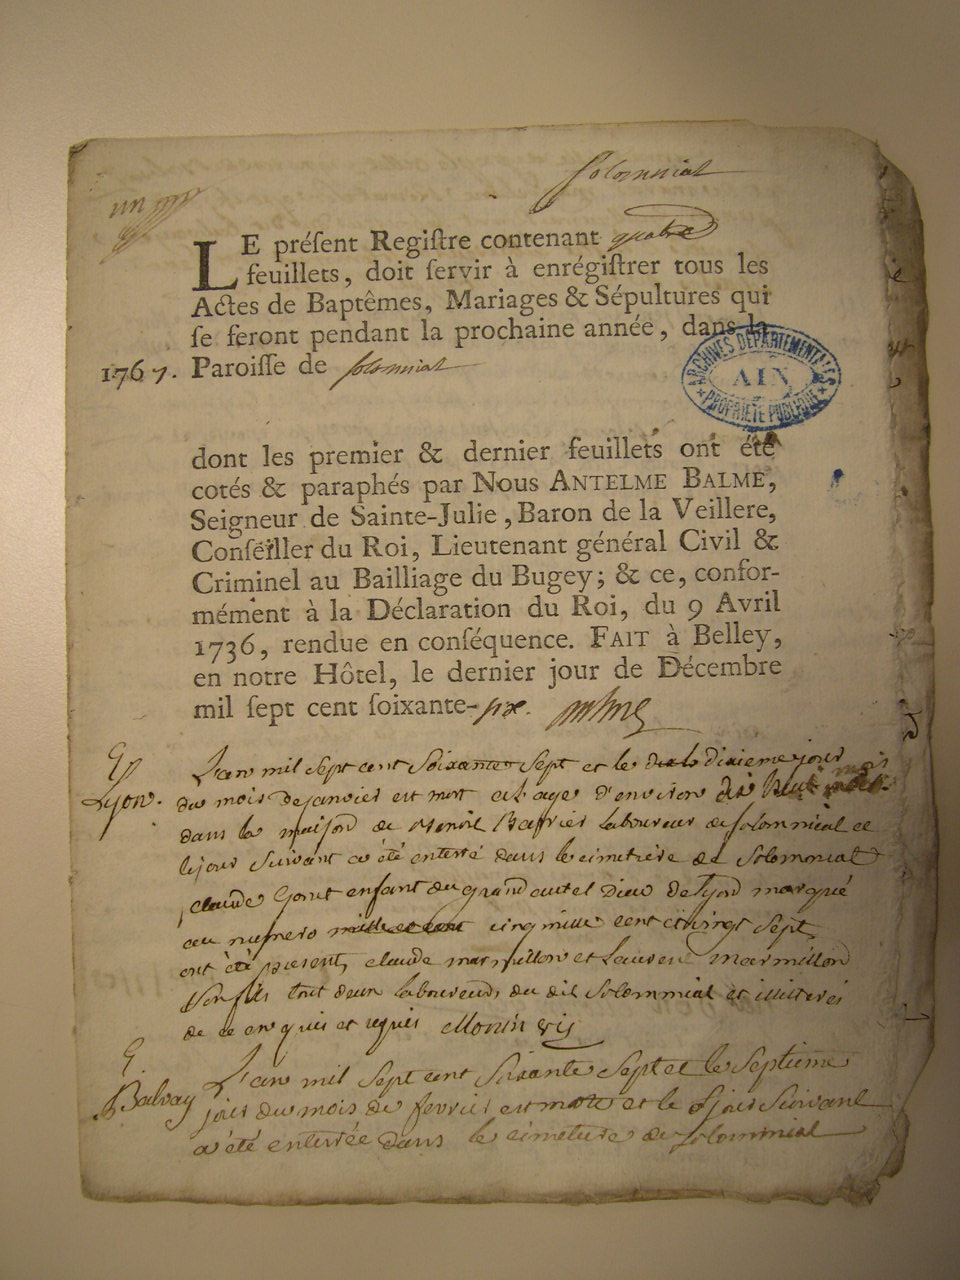 Solomniat
un
LE préſent Regiſtre contenant quatre
feuillets, doit ſervir à enrégiſtrer tous les
Actes de Baptêmes, Mariages & Sépultures qui
ſe feront pendant la prochaine année, dans la
1767. Paroiſſe de Solomniat
ARCHIVES DÉPARTEMENTALES
AIN
PROPRIÉTÉ PUBLIQUE
dont les premier & dernier feuillets ont été
cotés & paraphés par Nous ANTELME BALME,
Seigneur de Sainte-Julie, Baron de la Veillere,
Conſeiller du Roi, Lieutenant général Civil &
Criminel au Bailliage du Bugey; & ce, confor-
mément à la Déclaration du Roi, du 9 Avril
1736, rendue en conſéquence. FAIT à Belley,
en notre Hôtel, le dernier jour de Décembre
mil ſept cent ſoixante-six.
L'an mil Sept cent Soixante Sept et le dixieme jour
Lyon. du mois de janvier est mort at age d'environ dix huit mois
dans la maison de Benoit laboureur de Solomniat et
le jour Suivant a été enterré dans le cimetiere de Solomniat
claude enfant du grand autel Dieu de Lyon marqué
au numero mille et cent cinq mille cent et vingt Sept
ont été present, claude marmillon et Laurent marmillon
Son fils tout deux laboureurs du dit Solomniat et illiterés
de ce enquis et requis
L'an mil Sept cent Soixante Sept et le Septieme
Balvay jour du mois de fevrier est morte et le jour Suivant
a été enterrée dans le cimetiere de Solomniat